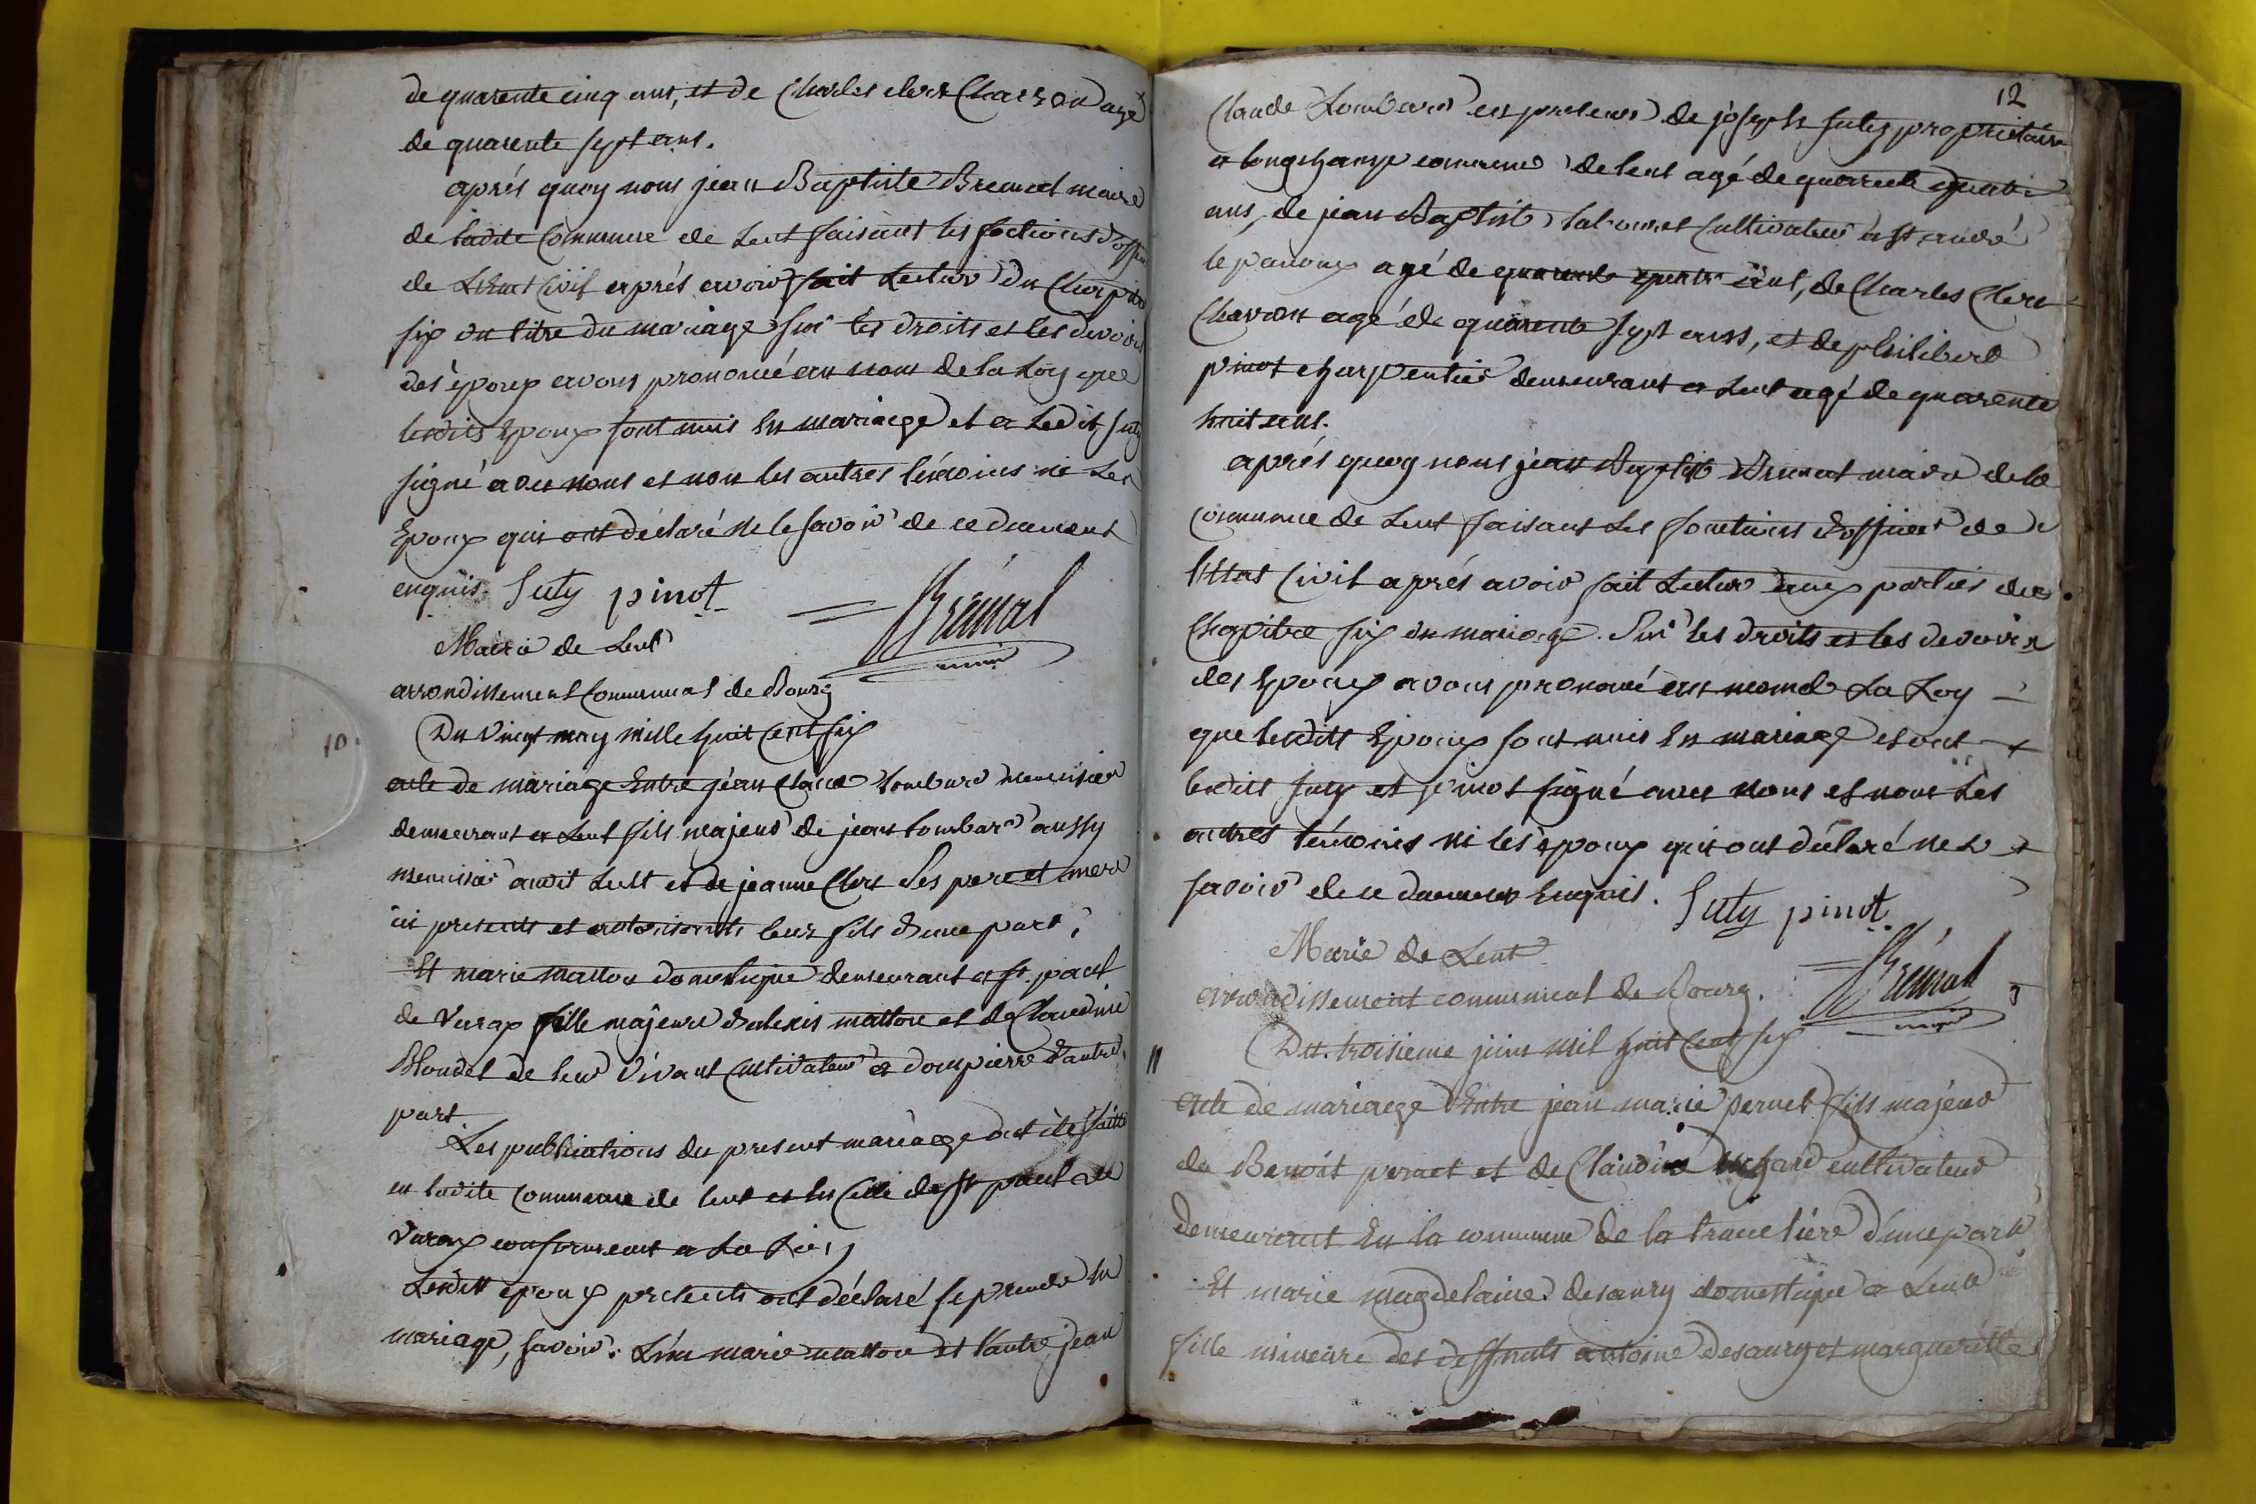 de quarente cinq ans, et de Charles clerc Charon agé
de quarente sept ans.
aprés quoy nous jean Baptiste Bremal maire
de ladite Commune de Lent faisant les fonctions d'off
de L'Etat Civil aprés avoir fait Lecture du Chapitre
six du titre du mariage sur les droits et les devoirs
des époux avons prononcé au nom de la Loy que
lesdits Epoux sont unis En mariage et a Ledit Suty
signé avec nous et non les autres témoins ni Les
Epoux qui ont déclaré ne le savoir de ce duement
enquis. Suty pinot
Brémal
maire
Mairie de Lent
arrondissement Communal de Bourg
10.
Du vingt may mille huit cent six
acte de mariage Entre jean Claude Lombard menuisier
demeurant a Lent fils majeur de jean Lombard aussy
menuisier audit Lent et de jeanne Clerc Ses pere et mere
ici presents et autorisants leur fils d'une part,
Et marie domestique demeurant a st. paul
de Varax fille majeure d'alexis et de Claudine
Blondel de leur vivant Cultivateur a dompierre d'autre
part.
Les publications du present mariage ont été faitte
en ladite Commune de lent et En Celle de st paul de
Varax conformement a La Loi,
Lesdits époux presents ont déclaré se prendre En
mariage, savoir: L'un marie et l'autre jean
12
Claude Lombard en presence de joseph Suty proprietaire
a longchamp commune de lent agé de quarente quatre
ans, de jean Baptiste cultivateur a st andré
le panoux agé de quarente quatre ans, de Charles Clerc
Charon agé de quarente sept ans, et de philibert
pinot charpentier demeurant a Lent agé de quarente
huit ans.
aprés quoy nous jean Baptiste Bremal maire de la
Commune de Lent faisant Les fonctions d'officier de
l'Etat Civil aprés avoir fait Lecture aux parties du
Chapitre six du mariage. Sur les droits et les devoirs
des Epoux avons prononcé au nom de La Loy
que lesdits Epoux sont unis En mariage et ont
lesdits Suty et pinot signé avec nous et non Les
autres témoins ni les époux qui ont déclaré ne le
savoir de ce duement Enquis. Suty pinot
Brémal
maire
Marie de Lent
arrondissement communal de Bourg.
11
Du. troisieme juin mil huit cent six
acte de mariage Entre jean marie pernet fils majeur
de Benoit pernet et de Claudine cultivateur
demeurant En la commune de la tranclière d'une part
Et marie magdelaine desaury domestique a Lent
fille mineure des deffunts antoine desaury et margueritte